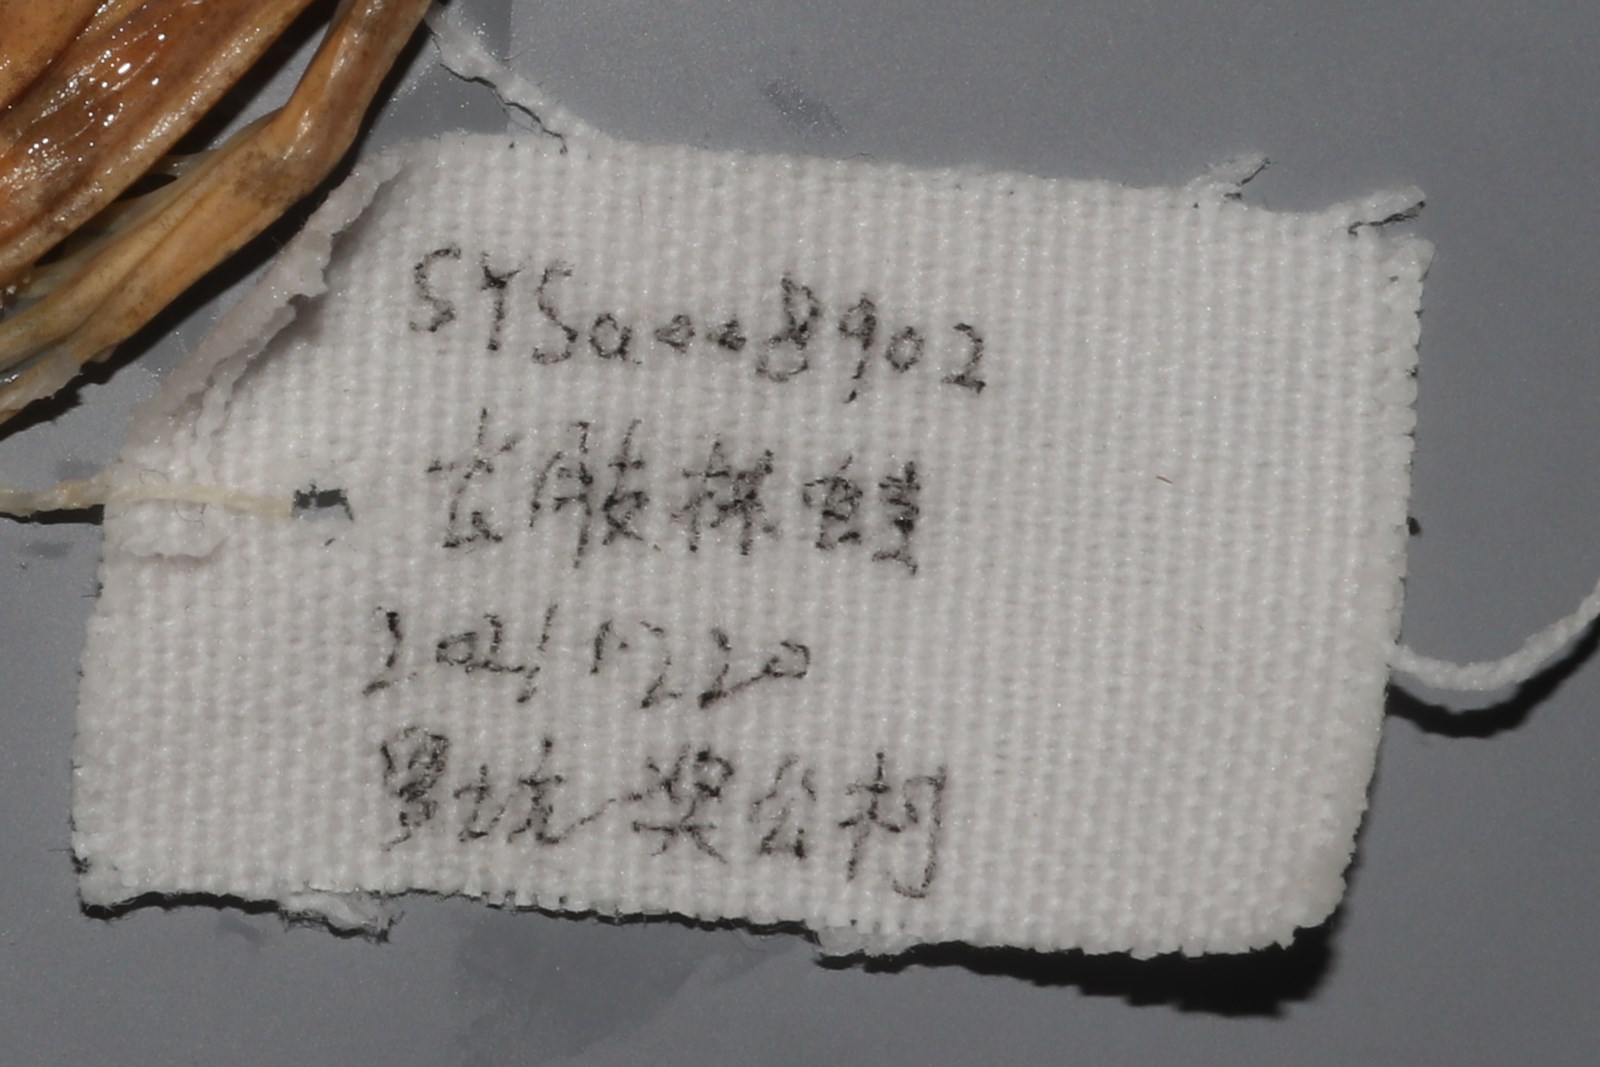 SYSa008902
长肢林蛙
2021 1220
罗坑 奖公村